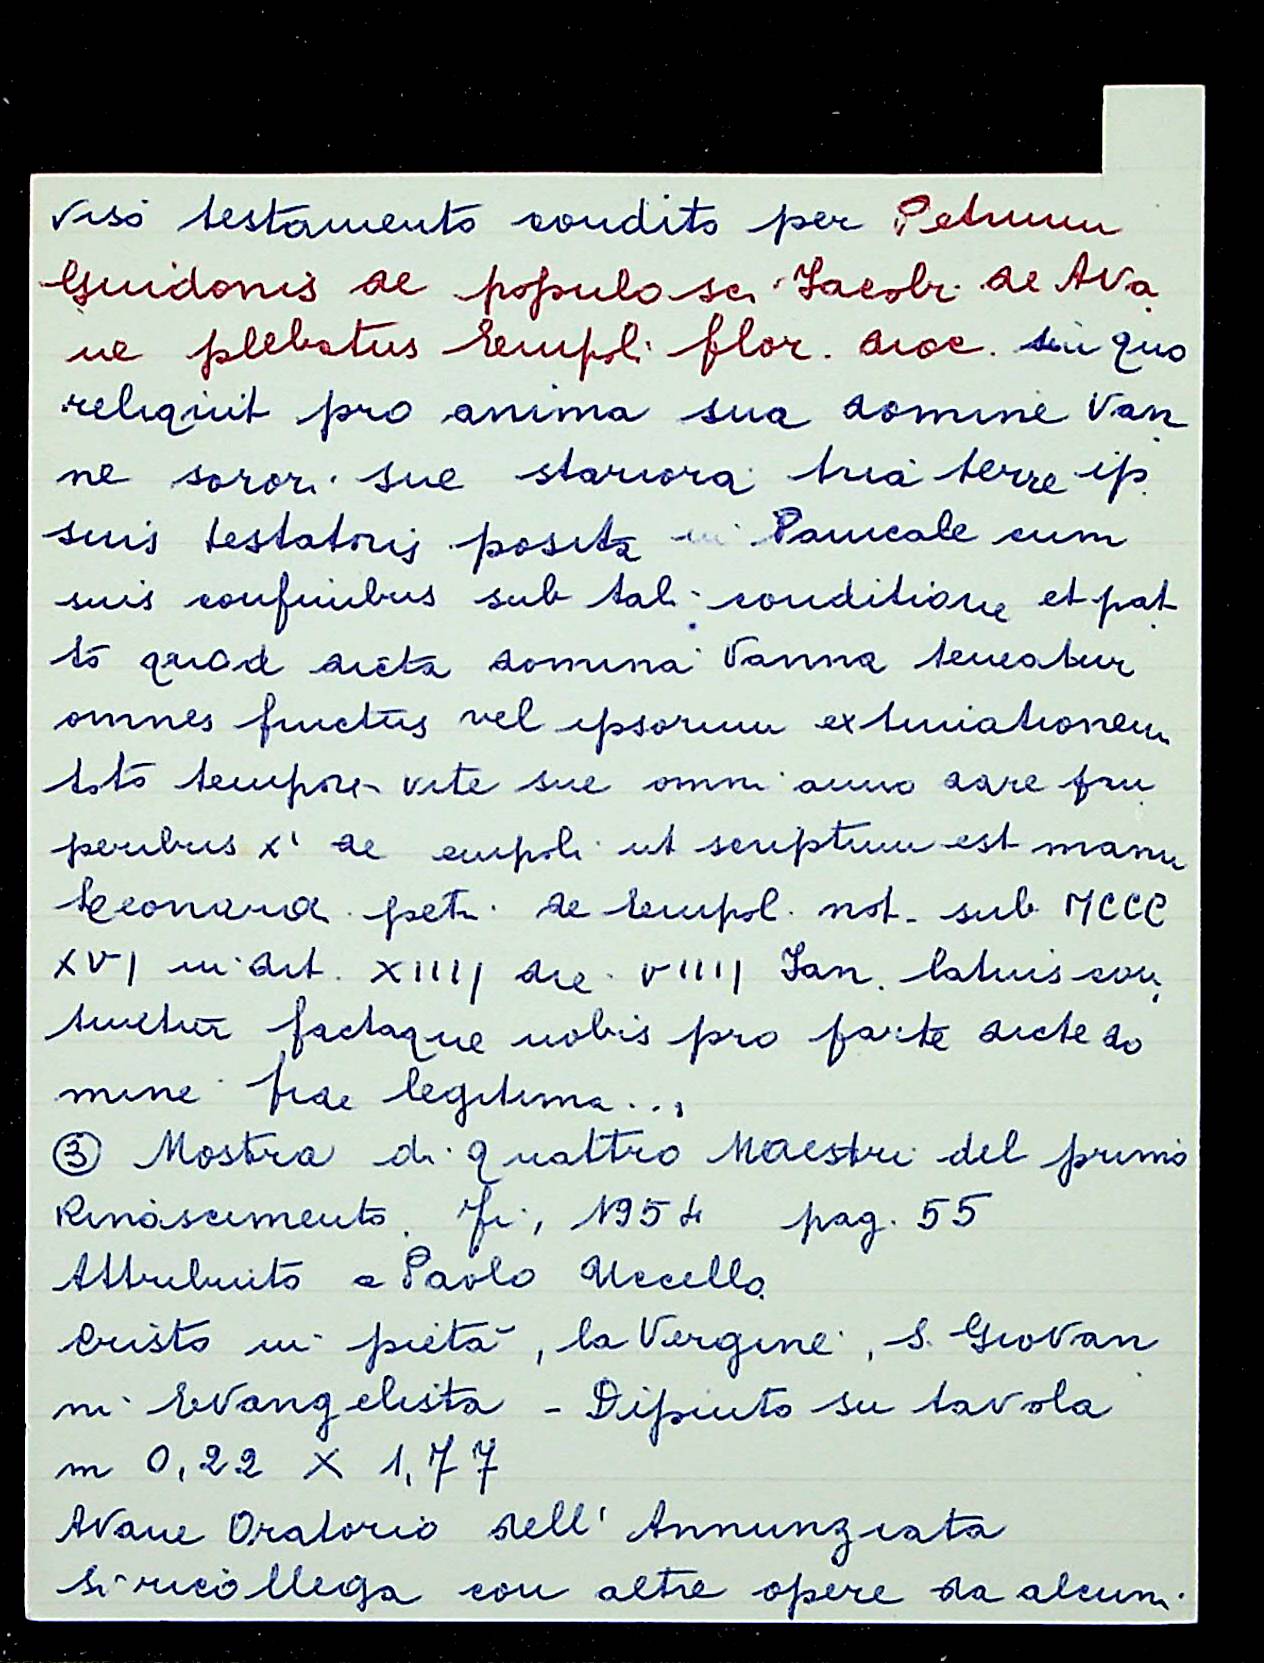 viso testamento condito per Petrum
Guidonis de populo sci Iacobi de Ava
ne plebatus Empoli flor. dioc. in quo
reliquit pro anima sua domine Van
ne sorori sue stariora tria terre ip
suis testatoris posita in Paucale cum
suis confinibus sub tali conditione et pat
to quod dicta domina Vanna teneatur
omnes fructus vel ipsorum extimationem
toto tempore vite sue omni anno dare pau
peribus xi de empoli ut scriptum est manu
Leonardi petri de Empol. not. sub MCCC
XVI indit. XIIII die VIIII Ian. latius con
tinetur factaque nobis pro parte dicte do
mine fide legitima...
③ Mostra di quattro Maestri del primo
Rinascimento. Fi, 1954 pag. 55
Attribuito a Paolo Uccello
Cristo in pietà, la Vergine, S. Giovan
ni Evangelista - Dipinto su tavola
m 0,22 X 1,77
Avane Oratorio dell'Annunziata
Si ricollega con altre opere da alcuni